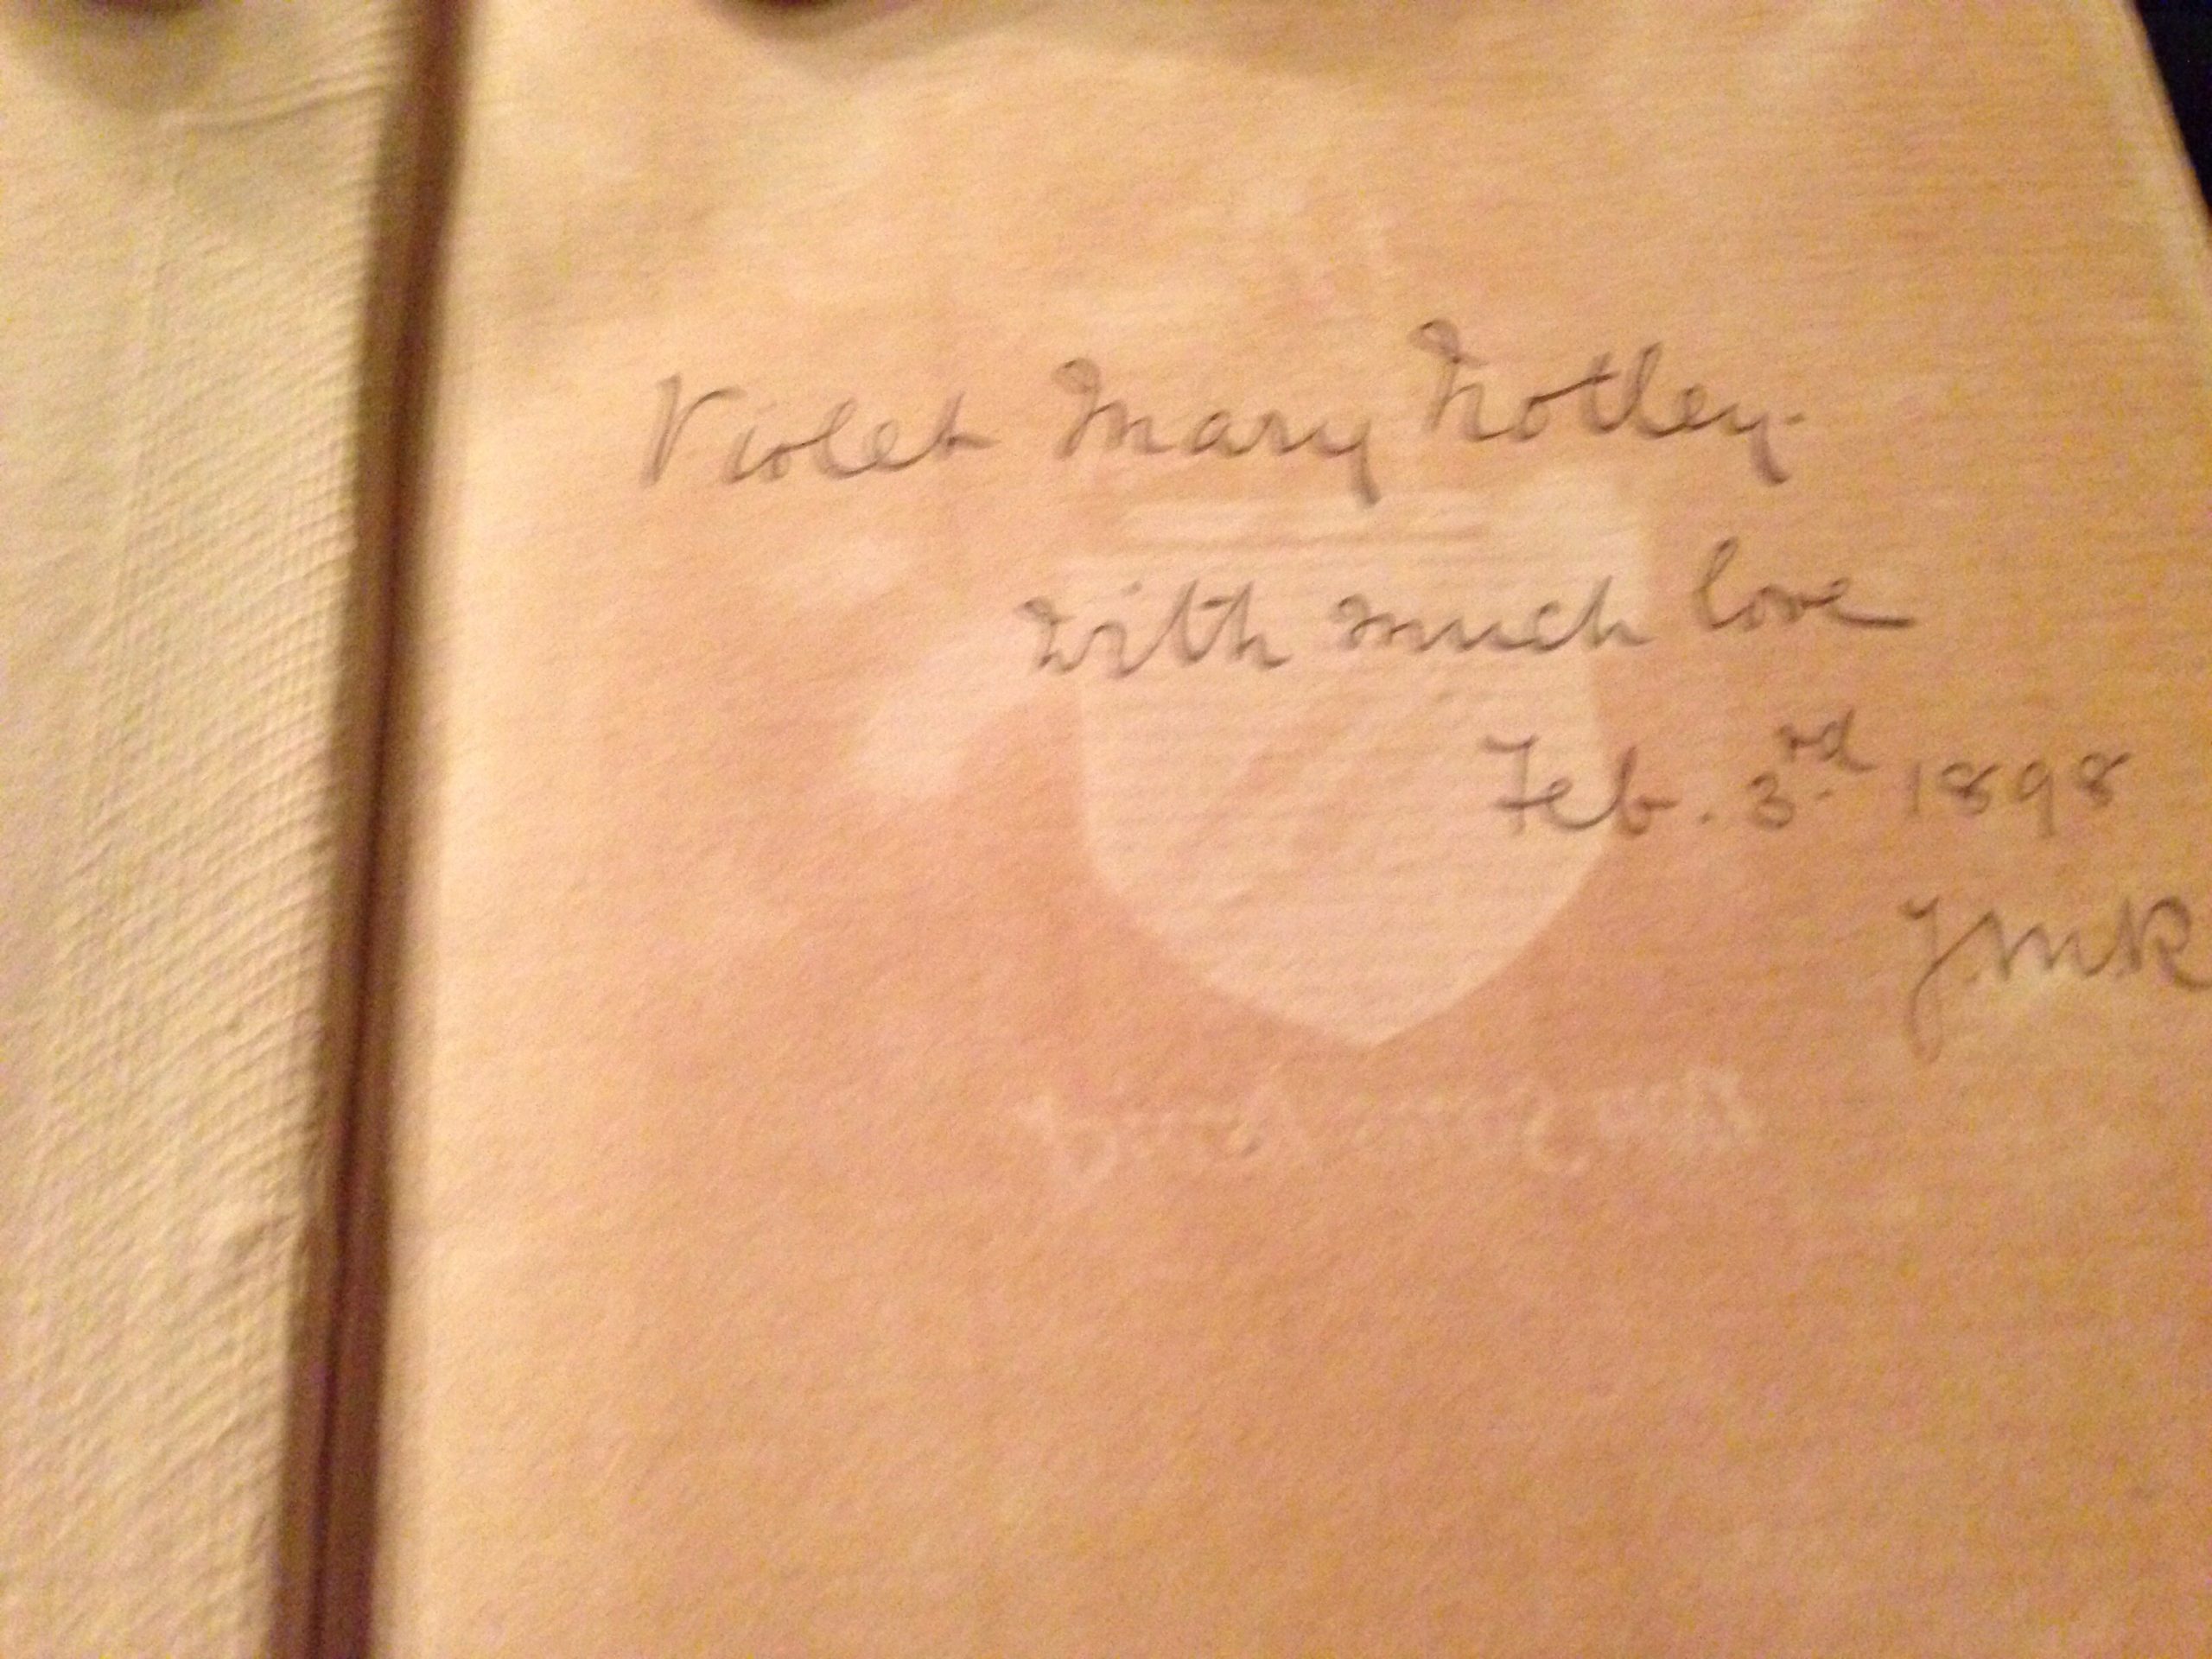 Violet Mary Notley.
with much love
Feb. 3rd 1898
JMR